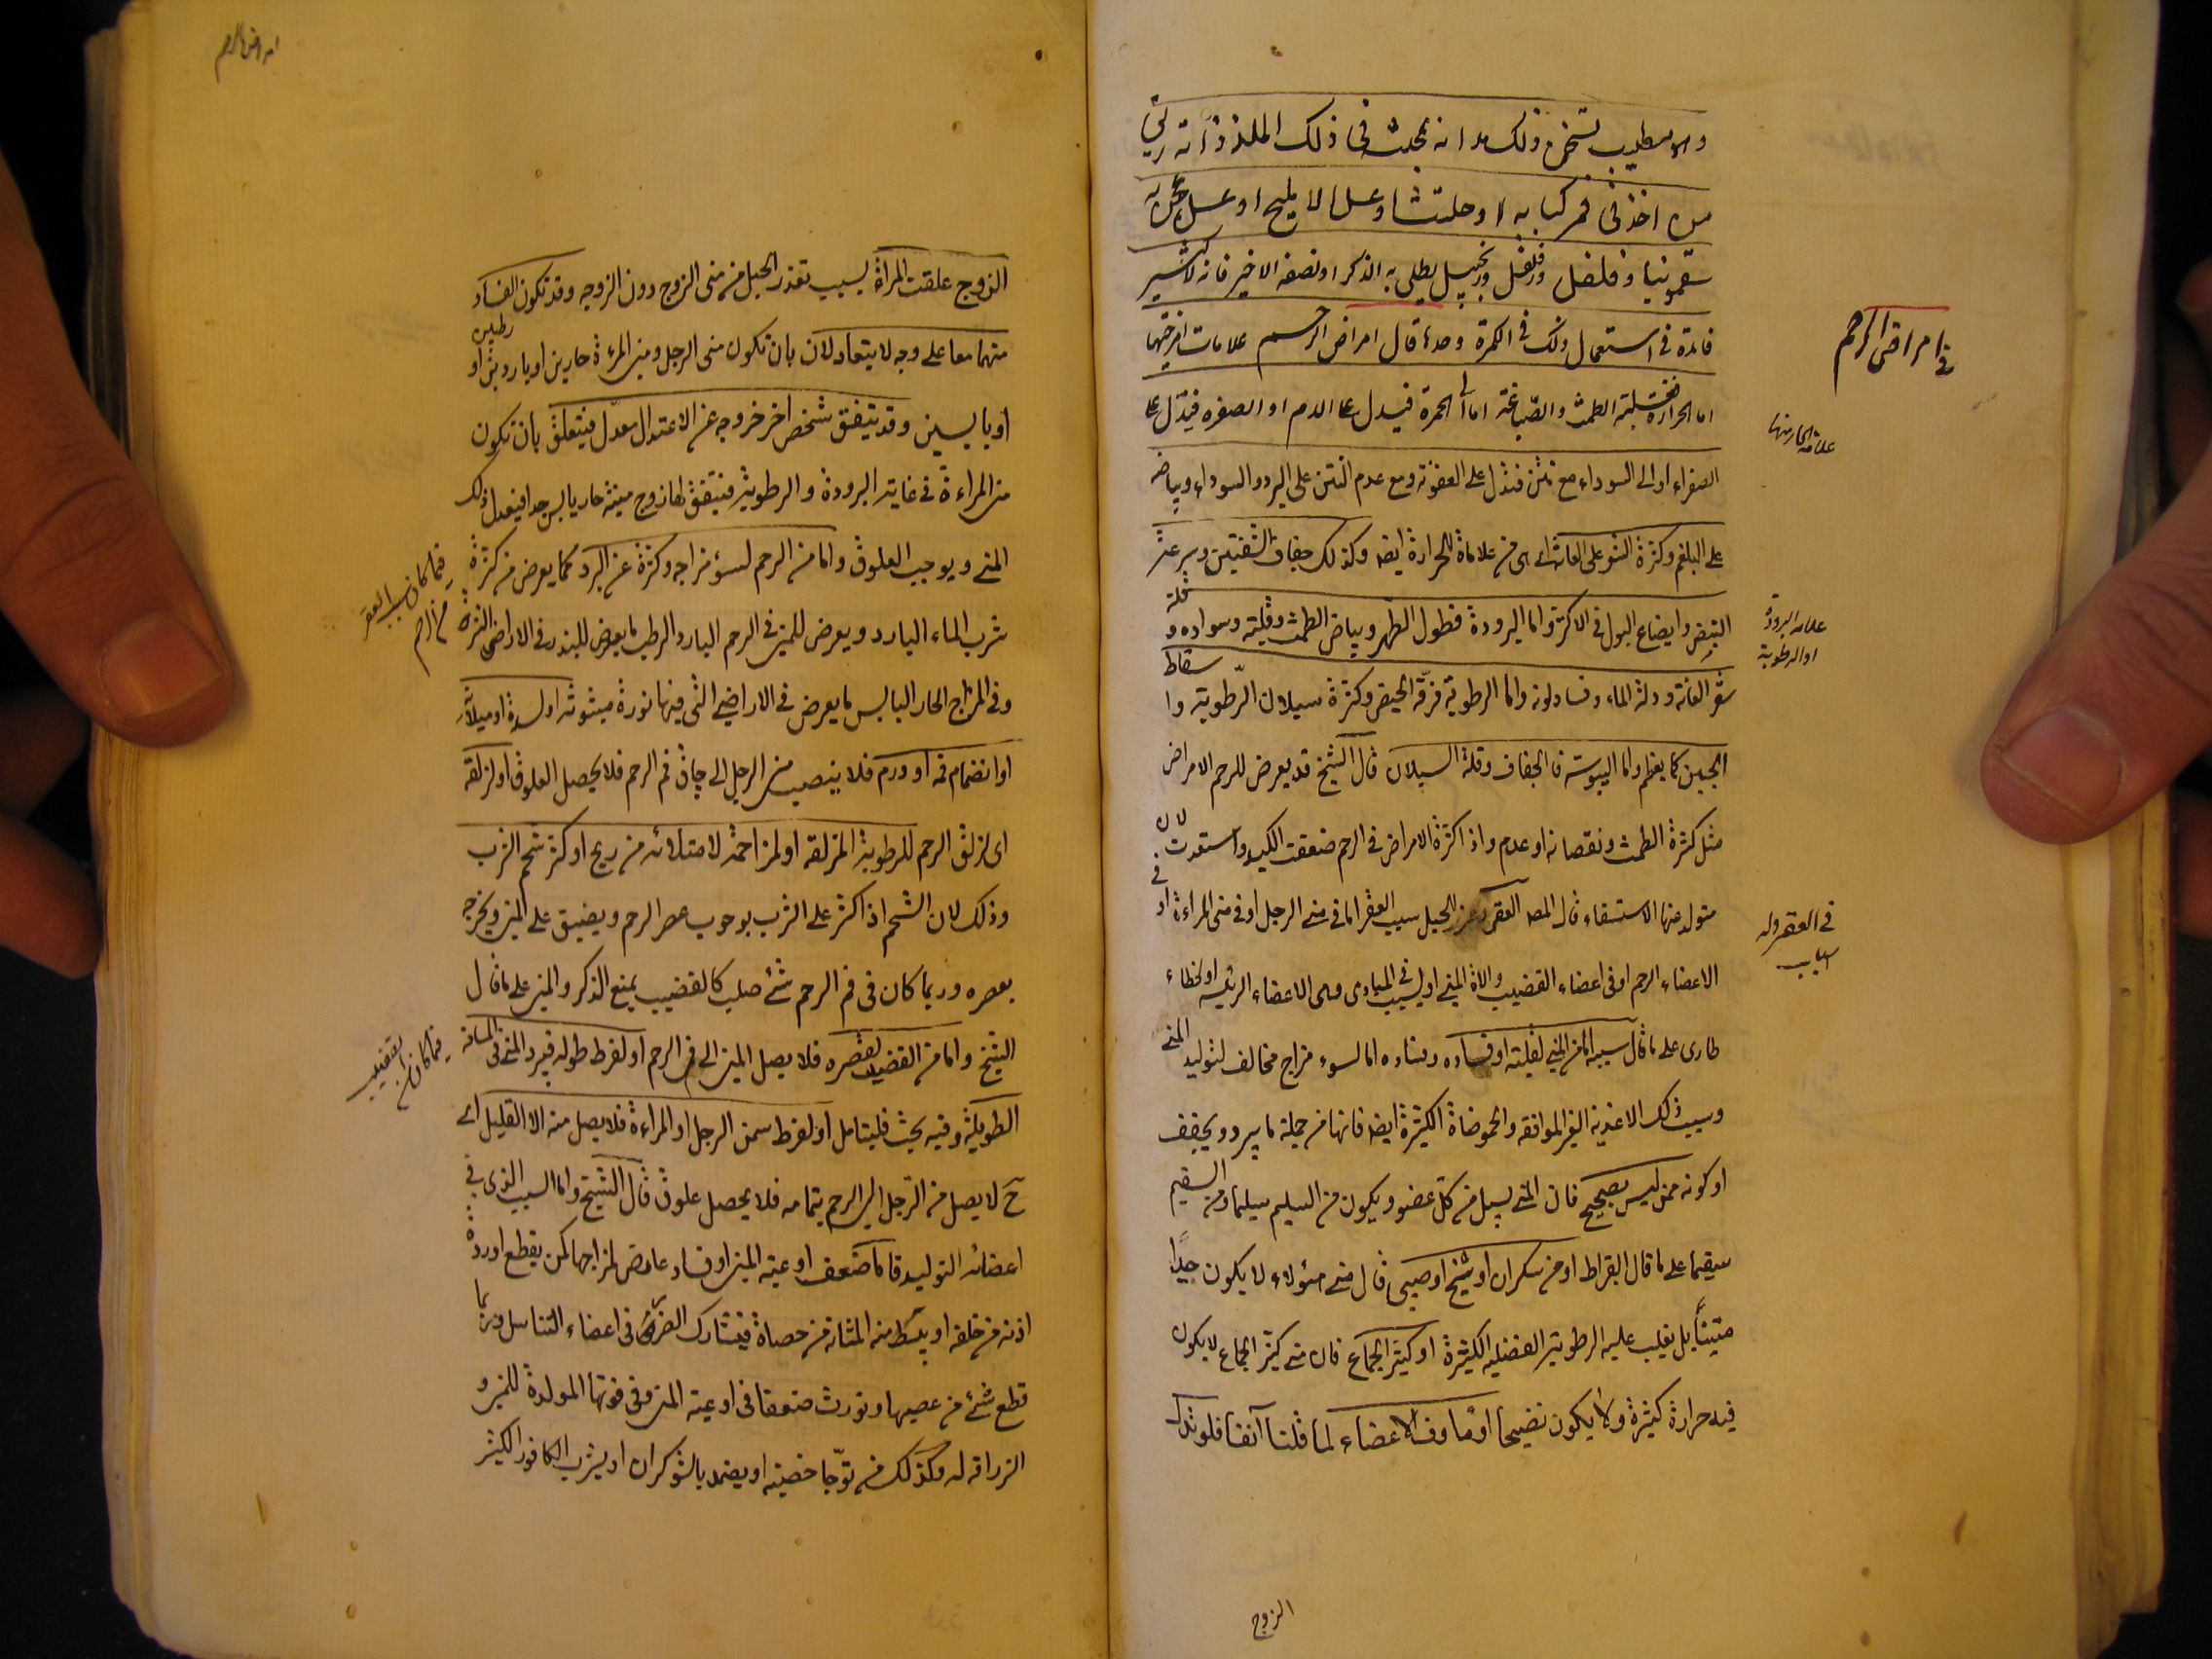 في امراض الرحم
من اخذ في فمه كبابه او حلتيتا او عسل الاهليلج او عسل عجن به
سقمونيا و فلفل و زنجبيل يطلى به الذكر او نصفه الاخير فانه لا كثير
فائدة في استعمال ذلك في الكمرة وحدها قال امراض الرحم علامات امزجتها
علامة الحار منها
اما الحرارة فقلة الطمث والصباغة اما الى الحمرة فيدل على الدم او الصفره فيدل على
الصفراء او الى السوداء مع نتن فتدل على العفونة ومع عدم النتن على البرد والسوداء وبياضه
على البلغم وكثرة الشعر على العانة اى من علاماة الحرارة ايضا وكذلك جفاف الشفتين وسرعة
علامه البرودة
او الرطوبة
النبض وانصباغ البول في الاكثر واما البرودة فطول الطهر وبياض الطمث وقلته وسواده و قلة
شعر العانة ودلة الماء وفساد لونه واما الرطوبة فرقة الحيض وكثرة سيلان الرطوبة واسقاط
الجنين كما يعظم واما اليبوسة فالجفاف وقلة السيلان قال الشيخ قد يعرض للرحم الامراض
مثل كثرة الطمث ونقصانه او عدم واذا كثرة الامراض في الرحم ضعفت الكبد واستعدت لان
في العقر وله
اسباب
يتولد عنها الاستسقاء قال المصـ العقر وعسر الحبل سبب العقر اما في منى الرجل او في منى المراءة او في
الاعضاء الرحم او في اعضاء القضيب والاة المنى او لسبب في المبادى وهى الاعضاء الرئيسه او لخطاء
طارى على ما قال سببه اما من المنى لقلته او فساده وفساده اما لسوء مزاج مخالف لتوليد المنى
وسبب ذلك الاغذية الغير الموافقه والحموضاة الكثيرة ايضا فانها من جملة ما يبرد ويجفف
او كونه ممن ليس بصحيح فان المنى يسيل من كل عضو ويكون من السليم سليما ومن السقيم
سقيما على ما قال البقراط او من سكران او شيخ او صبى قال منى هؤلاء لا يكون جيدا
متينا بل يغلب عليه الرطوبة الفضليه الكثيرة او كثير الجماع فان منى كثير الجماع لا يكون
فيه حرارة كثيرة ولا يكون نضيجا او ماوف الاعضاء لما قلنا آنفا فلو تبدل
الزوج
امراض الرحم
الزوج علقت المراة بسبب تعذر الحبل من منى الزوج دون الزوجه وقد تكون الفساد
منهما معا على وجه لا يتعادلان بان تكون منى الرجل ومنى المرءة حارين او باردين او رطبين
او يابسين وقد يتفق شخص اخر خروجه عن الاعتدال معدل فيتعلق بان تكون
منى المراءة في غاية البرودة والرطوبة فيتفق لها زوج منيه حار يابس جدا فيعدل ذلك
المنى ويوجب العلوق واما من الرحم لسؤ مزاجه وكثرة عن البرد كما يعرض من كثرة
فيما كان سبب العقر
من الرحم
شرب الماء البارد ويعرض للمنى في الرحم البارد الرطب ما يعرض للبذر في الاراضى النزة
وفي المزاج الحار اليابس ما يعرض في الاراضى التى فيها نورة مبثوثة او لسدة او ميلان
او انضمام فمه او ورم فلا ينصب منى الرجل الى جانب فم الرحم فلا يحصل العلوق او لزلقه
اى لزلق الرحم للرطوبة المزلقه او لمزاحمة لامتلائه من ريح او كثرة شحم الثرب
وذلك لان الشحم اذا كثر على الثرب يوجب عصر الرحم ويضيق على المنى ويخرجه
بعصره وربما كان في فم الرحم شئ صلب كالقضيب يمنع الذكر والمنى على ما قال
فيما كان من القضيب
الشيخ واما من القضيب لقصره فلا يصل المنى الى فم الرحم او لفرط طوله فيبرد المنى في المسافة
الطويلة وفيه بحث فليتامل او لفرط سمن الرجل او المراءة فلا يصل منه الا القليل اى
ح لا يصل من الرجل الى الرحم بتمامه فلا يحصل علوق قال الشيخ واما السبب الذى في
اعضائه التوليد فاما ضعف اوعية المنى او فساد عارض لمزاجها كمن يقطع اوردة
اذنه من خلفه او يبط منه المثانة من حصاة فيتشارك الضرر في اعضاء التناسل وربما
قطع شئ من عصبها وتورث ضعفا في اوعية المنى وفي قوتها المولدة للمنى و
الزراقه له وكذلك من توجا خصيته او يضمد بالشوكران او يشرب الكافور الكثير